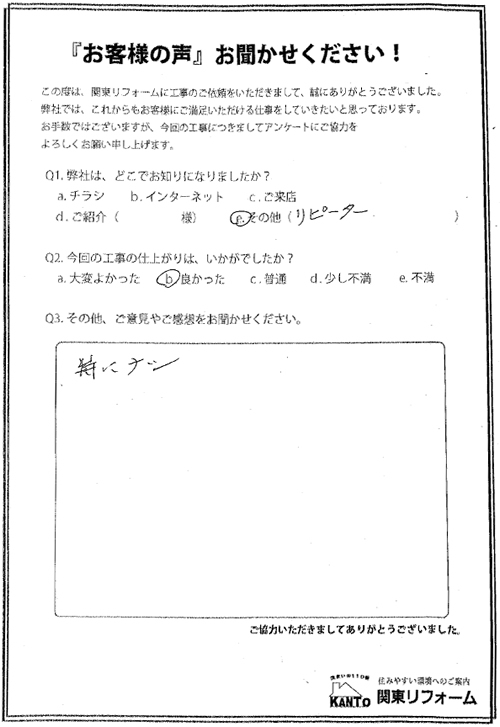 『お客様の声』お聞かせください！
この度は、関東リフォームに工事のご依頼をいただきまして、誠にありがとうございました。
弊社では、これからもお客様にご満足いただける仕事をしていきたいと思っております。
お手数ではございますが、今回の工事につきましてアンケートにご協力を
よろしくお願い申し上げます。
Q1. 弊社は、どこでお知りになりましたか？
a. チラシ b. インターネット c. ご来店
d. ご紹介（ 様） e. その他（リピーター ）
Q2. 今回の工事の仕上がりは、いかがでしたか？
a. 大変よかった b 良かった c. 普通 d. 少し不満 e. 不満
Q3. その他、ご意見やご感想をお聞かせください。
特にナシ
ご協力いただきましてありがとうございました。
住まいの110番
KANTO
住みやすい環境へのご案内
関東リフォーム